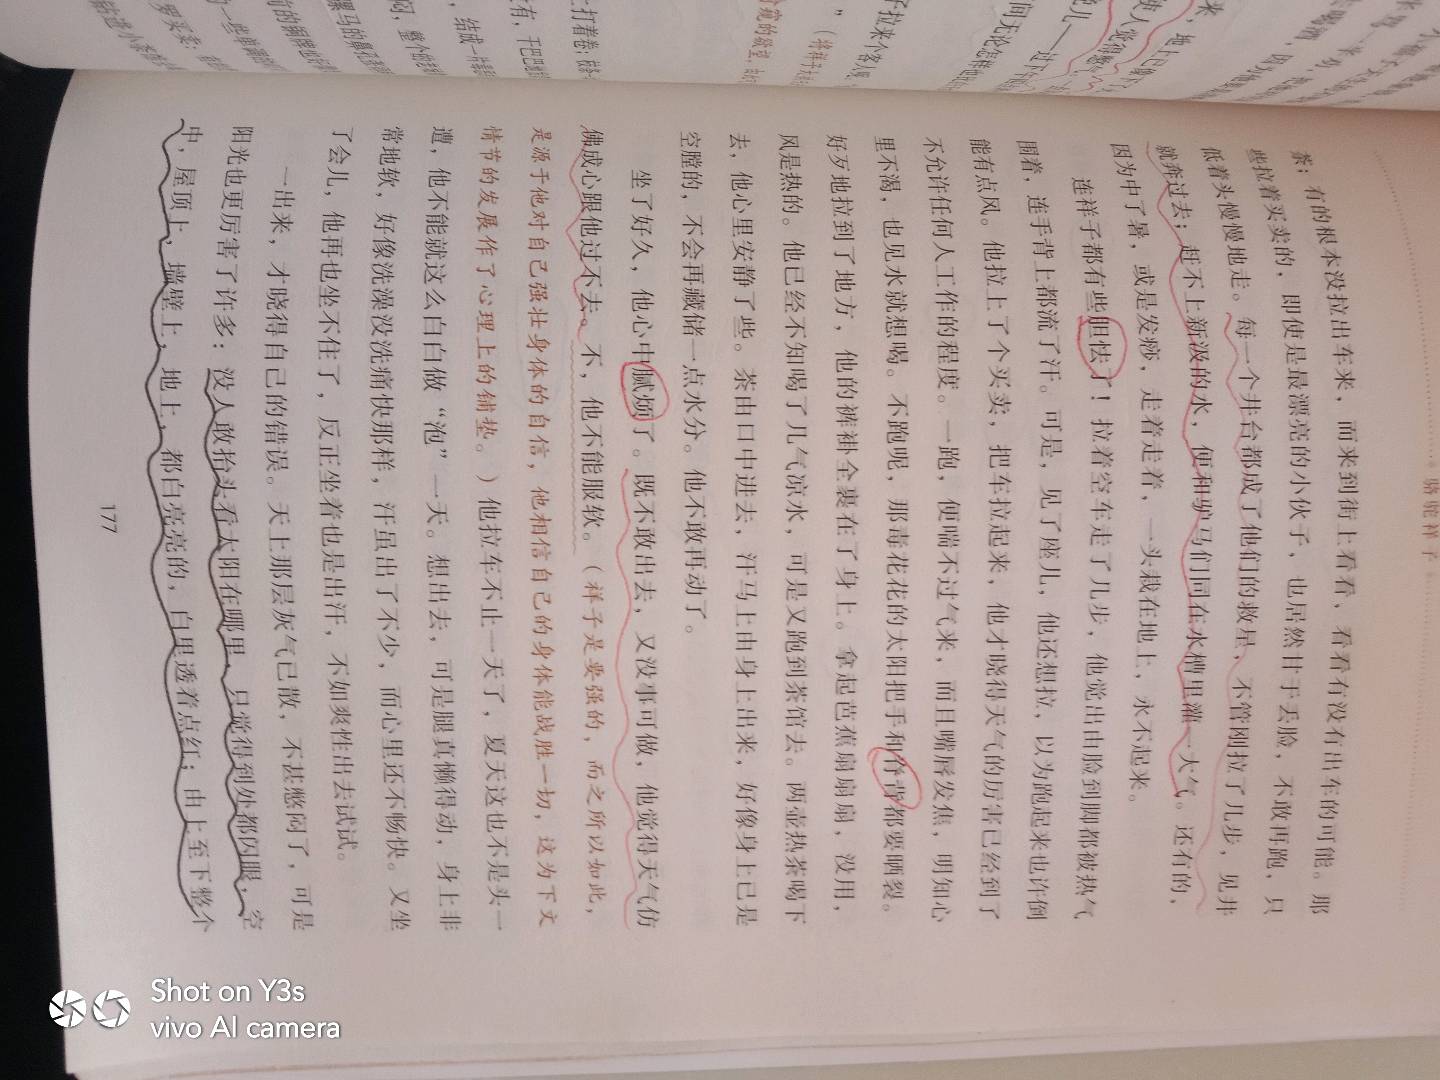 骆驼祥子
茶；有的根本没拉出车来，而来到街上看看，看看有没有出车的可能。那
些拉着买卖的，即使是最漂亮的小伙子，也居然甘于丢脸，不敢再跑，只
低着头慢慢地走。每一个井台都成了他们的救星，不管刚拉了几步，见井
就奔过去；赶不上新汲的水，便和驴马们同在水槽里灌一大气。还有的，
因为中了暑，或是发痧，走着走着，一头栽在地上，永不起来。
连祥子都有些胆怯了！拉着空车走了几步，他觉出由脸到脚都被热气
围着，连手背上都流了汗。可是，见了座儿，他还想拉，以为跑起来也许倒
能有点风。他拉上了个买卖，把车拉起来，他才晓得天气的厉害已经到了
不允许任何人工作的程度。一跑，便喘不过气来，而且嘴唇发焦，明知心
里不渴，也见水就想喝。不跑呢，那毒花花的太阳把手和脊背都要晒裂。
好歹地拉到了地方，他的裤褂全裹在了身上。拿起芭蕉扇扇扇，没用，
风是热的。他已经不知喝了几气凉水，可是又跑到茶馆去。两壶热茶喝下
去，他心里安静了些。茶由口中进去，汗马上由身上出来，好像身上已是
空膛的，不会再藏储一点水分。他不敢再动了。
坐了好久，他心中腻烦了。既不敢出去，又没事可做，他觉得天气仿
佛成心跟他过不去。不，他不能服软。（祥子是要强的，而之所以如此，
是源于他对自己强壮身体的自信，他相信自己的身体能战胜一切，这为下文
情节的发展作了心理上的铺垫。）他拉车不止一天了，夏天这也不是头一
遭，他不能就这么白白做“泡”一天。想出去，可是腿真懒得动，身上非
常地软，好像洗澡没洗痛快那样，汗虽出了不少，而心里还不畅快。又坐
了会儿，他再也坐不住了，反正坐着也是出汗，不如爽性出去试试。
一出来，才晓得自己的错误。天上那层灰气已散，不甚憋闷了，可是
阳光也更厉害了许多：没人敢抬头看太阳在哪里，只觉得到处都闪眼，空
中，屋顶上，墙壁上，地上，都白亮亮的，白里透着点红；由上至下整个
177
Shot on Y3s
vivo AI camera